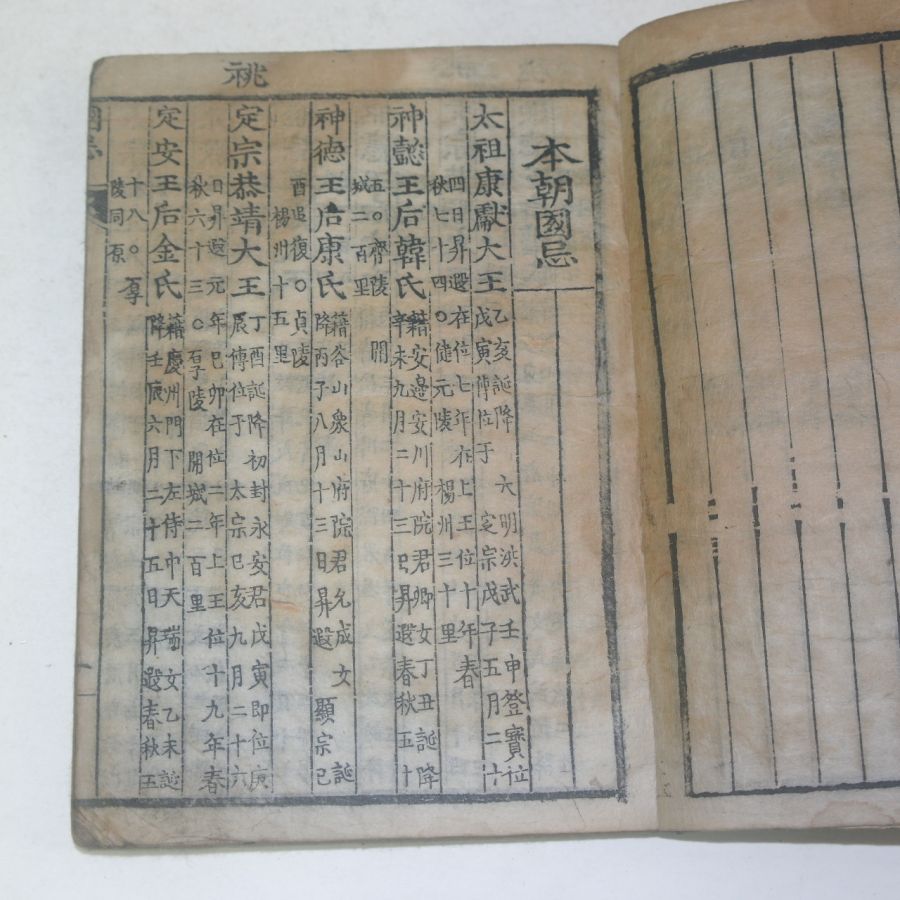 本朝國忌
太祖康獻大王
乙亥誕降 大明洪武壬申登寶位
戊寅傳位于 定宗戊子五月二十
四日昇遐在位七年在上王位十年春
秋七十四〇健元陵 楊州三十里
神懿王后韓氏
籍安邊安川府院君卿女丁丑誕降
辛未九月二十三日昇遐春秋五十
五〇齊陵 開
城二百里
神德王后康氏
籍谷山象山府院君允成女 誕
降丙子八月十三日昇遐 顯宗己
酉追復〇貞陵
楊州十五里
祧
定宗恭靖大王
丁酉誕降初封永安君戊寅即位庚
辰傳位于 太宗己亥九月二十六
日昇遐元年己卯在位二年上王位十九年春
秋六十三〇厚陵 開城二百里
定安王后金氏
籍慶州門下左侍中天瑞女乙未誕
降壬辰六月二十五日昇遐春秋五
十八〇厚
陵同原
國忌